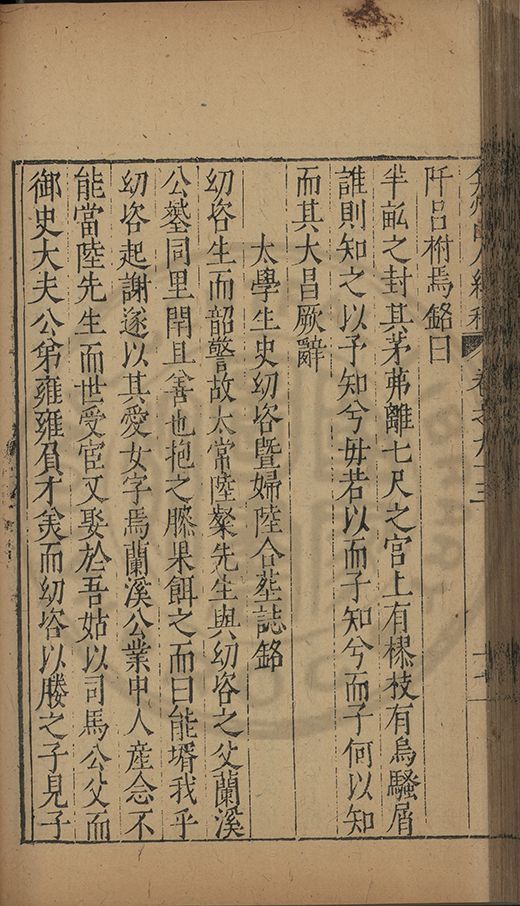 弇州山人續稿 卷之九十三 十七
阡吕祔焉銘曰
半畝之封其茅茀離七尺之宫上有樛枝有烏騷屑
誰則知之以予知兮毋若以而子知兮而子何以知
而其大昌厥辭
太學生史幼咨曁婦陸合塟誌銘
幼咨生而韶警故太常陸粲先生與幼咨之父蘭溪
公塟同里閈且善也抱之膝果餌之而曰能壻我乎
幼咨起謝遂以其愛女字焉蘭溪公業中人産念不
能當陸先生而世受宦又娶於吾姑以司馬公父而
御史大夫公弟雍雍負才矣而幼咨以媵之子見子